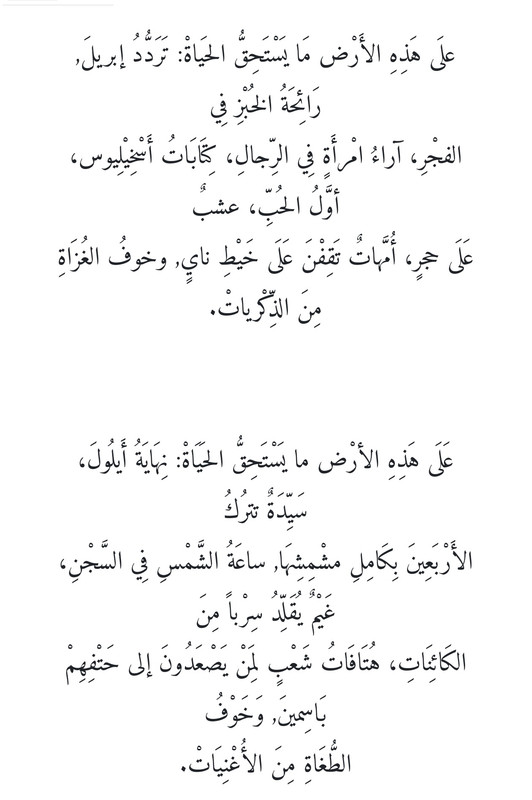 علَى هَذِهِ الأَرْض مَا يَسْتَحِقُّ الحَياةْ: تَرَدُّدُ إبريلَ,
رَائِحَةُ الخُبْزِ فِي
الفجْرِ، آراءُ امْرأَةٍ فِي الرِّجالِ، كِتَابَاتُ أَسْخِيْلِيوس،
أوَّلُ الحُبِّ، عشبٌ
عَلَى حجرٍ، أُمَّهاتٌ تَقِفْنَ عَلَى خَيْطِ نايٍ, وخوفُ الغُزَاةِ
مِنَ الذِّكْرياتْ.
عَلَى هَذِهِ الأرْض ما يَسْتَحِقُّ الحَيَاةْ: نِهَايَةُ أَيلُولَ،
سَيِّدَةٌ تترُكُ
الأَرْبَعِينَ بِكَامِلِ مشْمِشِهَا, ساعَةُ الشَّمْسِ فِي السَّجْنِ،
غَيْمٌ يُقَلِّدُ سِرْباً مِنَ
الكَائِنَاتِ، هُتَافَاتُ شَعْبٍ لِمَنْ يَصْعَدُونَ إلى حَتْفِهِمْ
بَاسِمينَ, وَخَوْفُ
الطُّغَاةِ مِنَ الأُغْنِيَاتْ.